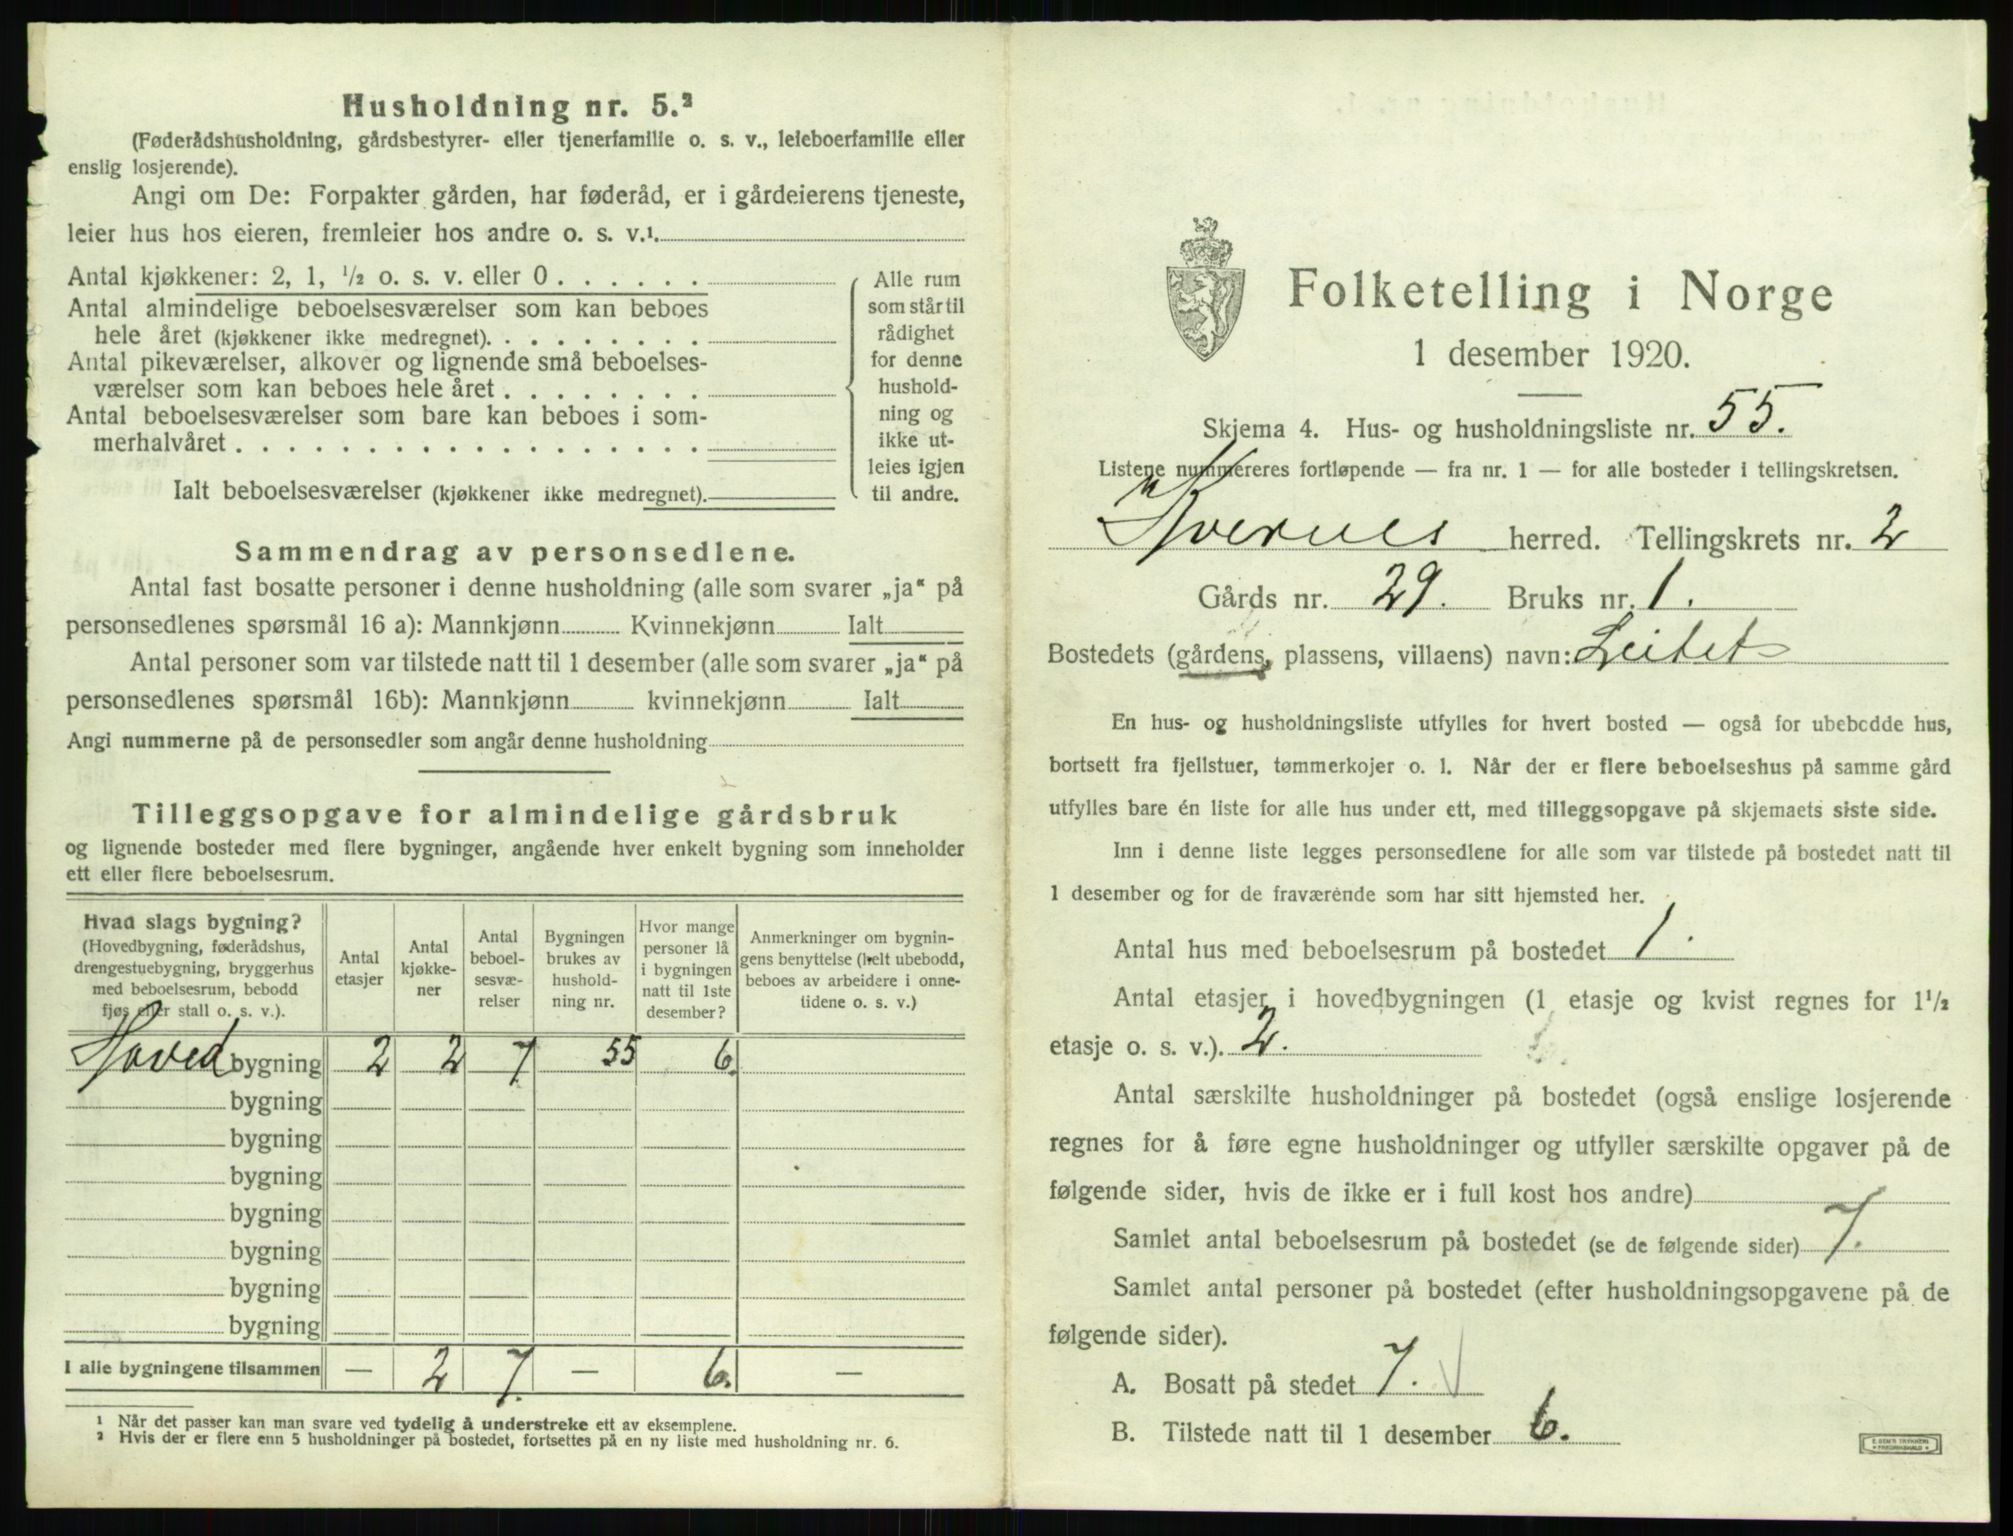 Husholdning nr. 5.²
(Føderådshusholdning, gårdsbestyrer- eller tjenerfamilie o. s. v., leieboerfamilie eller
enslig losjerende).
Angi om De: Forpakter gården, har føderåd, er i gårdeierens tjeneste,
leier hus hos eieren, fremleier hos andre o. s. v.¹
Antal kjøkkener: 2, 1, ½ o. s. v. eller 0 . . . . . .
Antal almindelige beboelsesværelser som kan beboes
hele året (kjøkkener ikke medregnet). . . . . . . . .
Antal pikeværelser, alkover og lignende små beboelses-
værelser som kan beboes hele året . . . . . . . .
Antal beboelsesværelser som bare kan beboes i som-
merhalvåret . . . . . . . . . . . . . . . . . .
Ialt beboelsesværelser (kjøkkener ikke medregnet).
Alle rum
som står til
rådighet
for denne
hushold-
ning og
ikke ut-
leies igjen
til andre.
Sammendrag av personsedlene.
Antal fast bosatte personer i denne husholdning (alle som svarer „ja“ på
personsedlenes spørsmål 16 a): Mannkjønn Kvinnekjønn Ialt
Antal personer som var tilstede natt til 1 desember (alle som svarer „ja“ på
personsedlenes spørsmål 16b): Mannkjønn kvinnekjønn Ialt
Angi nummerne på de personsedler som angår denne husholdning
Tilleggsopgave for almindelige gårdsbruk
og lignende bosteder med flere bygninger, angående hver enkelt bygning som inneholder
ett eller flere beboelsesrum.
Hvad slags bygning?
(Hovedbygning, føderådshus,
drengestuebygning, bryggerhus
med beboelsesrum, bebodd
fjøs eller stall o. s. v.).
Antal
etasjer
Antal
kjøkke-
ner
Antal
beboel-
sesvæ-
relser
Bygningen
brukes av
hushold-
ning nr.
Hvor mange
personer lå
i bygningen
natt til 1ste
desember?
Anmerkninger om bygnin-
gens benyttelse (helt ubebodd,
beboes av arbeidere i onne-
tidene o. s. v.)
Hoved bygning 2 2 7 55 6.
bygning
bygning
bygning
bygning
bygning
bygning
bygning
I alle bygningene tilsammen — 2 7. — 6. —
¹ Når det passer kan man svare ved tydelig å understreke ett av eksemplene.
² Hvis der er flere enn 5 husholdninger på bostedet, fortsettes på en ny liste med husholdning nr. 6.
Folketelling i Norge
1 desember 1920.
Skjema 4. Hus- og husholdningsliste nr. 55.
Listene nummereres fortløpende — fra nr. 1 — for alle bosteder i tellingskretsen.
Kvernes herred. Tellingskrets nr. 2
Gårds nr. 29. Bruks nr. 1.
Bostedets (gårdens, plassens, villaens) navn: Leitet
En hus- og husholdningsliste utfylles for hvert bosted — også for ubebodde hus,
bortsett fra fjellstuer, tømmerkojer o. l. Når der er flere beboelseshus på samme gård
utfylles bare én liste for alle hus under ett, med tilleggsopgave på skjemaets siste side.
Inn i denne liste legges personsedlene for alle som var tilstede på bostedet natt til
1 desember og for de fraværende som har sitt hjemsted her.
Antal hus med beboelsesrum på bostedet 1.
Antal etasjer i hovedbygningen (1 etasje og kvist regnes for 1½
etasje o. s. v.). 2.
Antal særskilte husholdninger på bostedet (også enslige losjerende
regnes for å føre egne husholdninger og utfyller særskilte opgaver på de
følgende sider, hvis de ikke er i full kost hos andre)
Samlet antal beboelsesrum på bostedet (se de følgende sider) 7.
Samlet antal personer på bostedet (efter husholdningsopgavene på de
følgende sider).
A. Bosatt på stedet 7.
B. Tilstede natt til 1 desember 6.